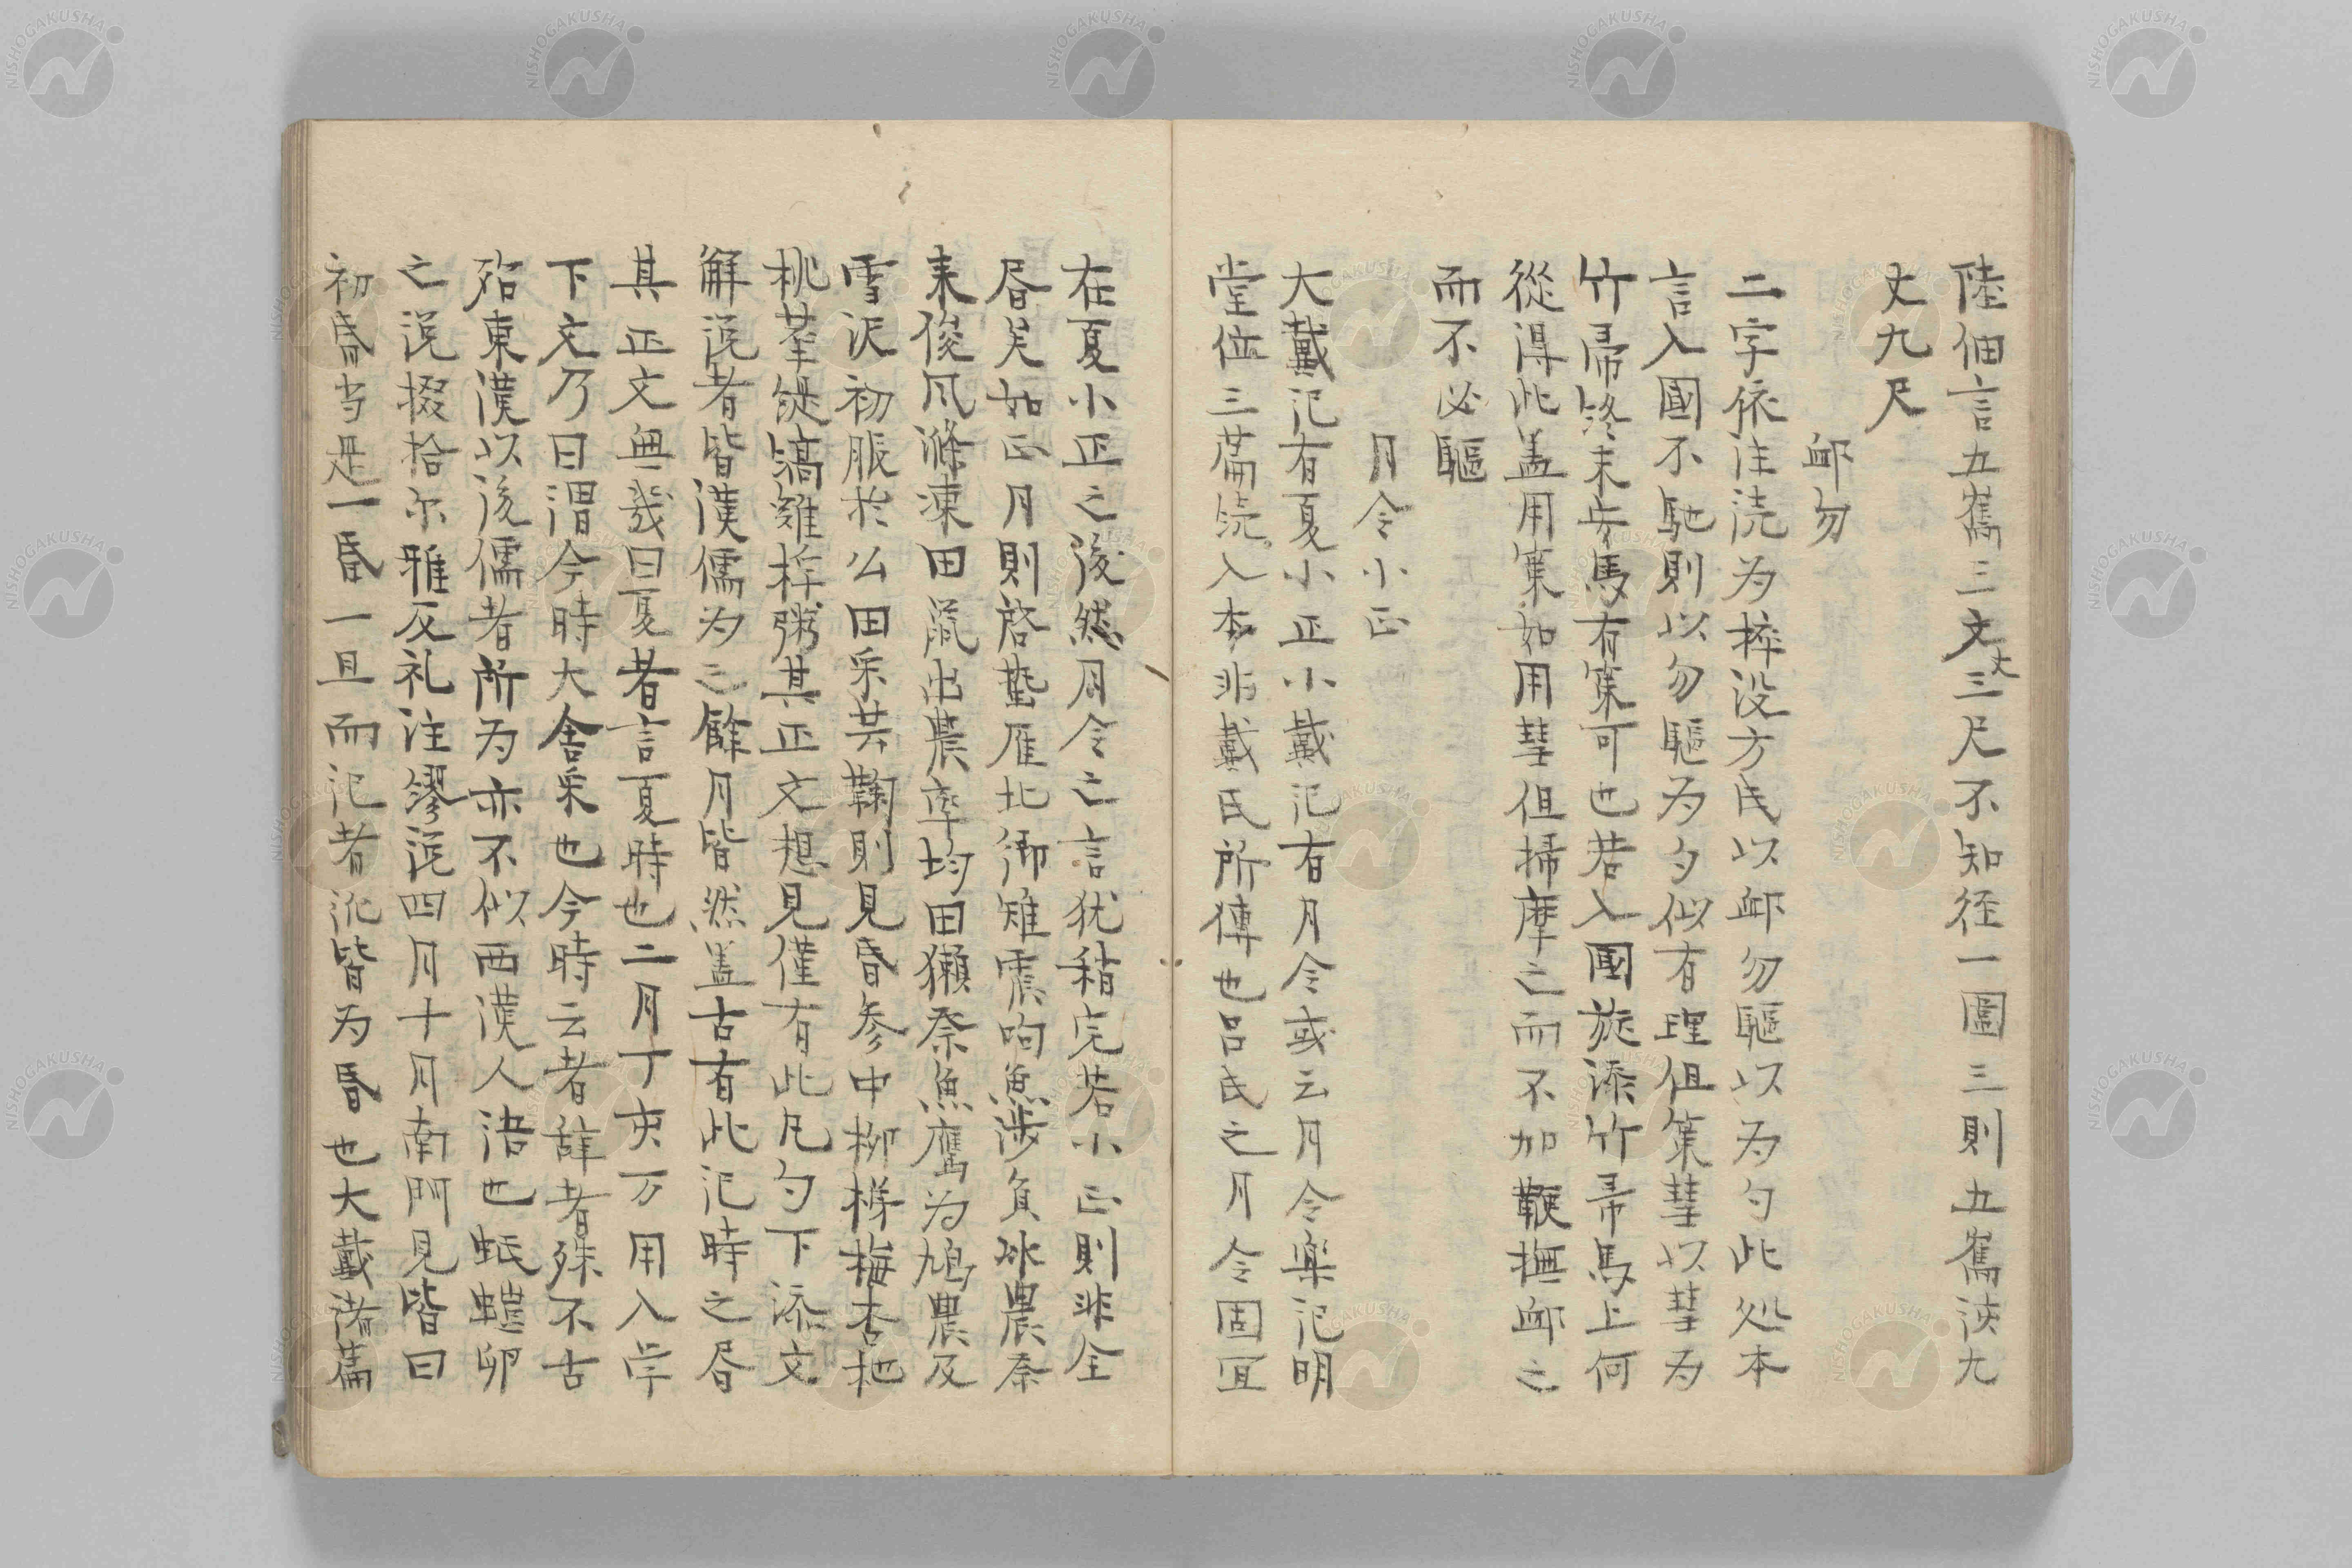 陸佃言五雋三文丈三尺不知径一圍三則五雋浹九
丈九尺
卹勿
二字依注読为捽没方氏以卹勿驅以为勺此処本
言入國不馳則以勿驅为勺似有理但策彗以彗为
竹帚終末步馬有策可也若入國旋添竹帚馬上何
從淂此盖用策如用彗但掃摩之而不加鞭撫卹之
而不必驅
月令小正
大戴记有夏小正小戴记有月令或云月令楽记明
堂位三篇続入本非戴氏所傳也吕氏之月令固宜
在夏小正之後然月令之言犹稍完若小正則非全
昏矣如正月則啓蟄雁北御雉震呴魚涉負冰農奈
耒俊风滌凍田鼠出農率均田獺祭魚鷹为鳩農及
雪沢初服於公田采芸鞠則見昏参中栁梯梅杏杝
桃莑緹縞雞桴粥其正文想見僅有此凡勺下添文
解説者皆漢儒为之餘月皆然盖古有此记時之昏
其正文無幾曰夏者言夏時也二月丁亥万用入学
下文乃曰謂今時大舎采也今時云者辞者殊不古
殆東漢以後儒者所为亦不似西漢人语也蚳螘卵
之説掇拾尔雅及礼注繆説四月十月南門見皆曰
初昏当是一昏一旦而记者记皆为昏也大戴诸篇
NISHOGAKUSHA